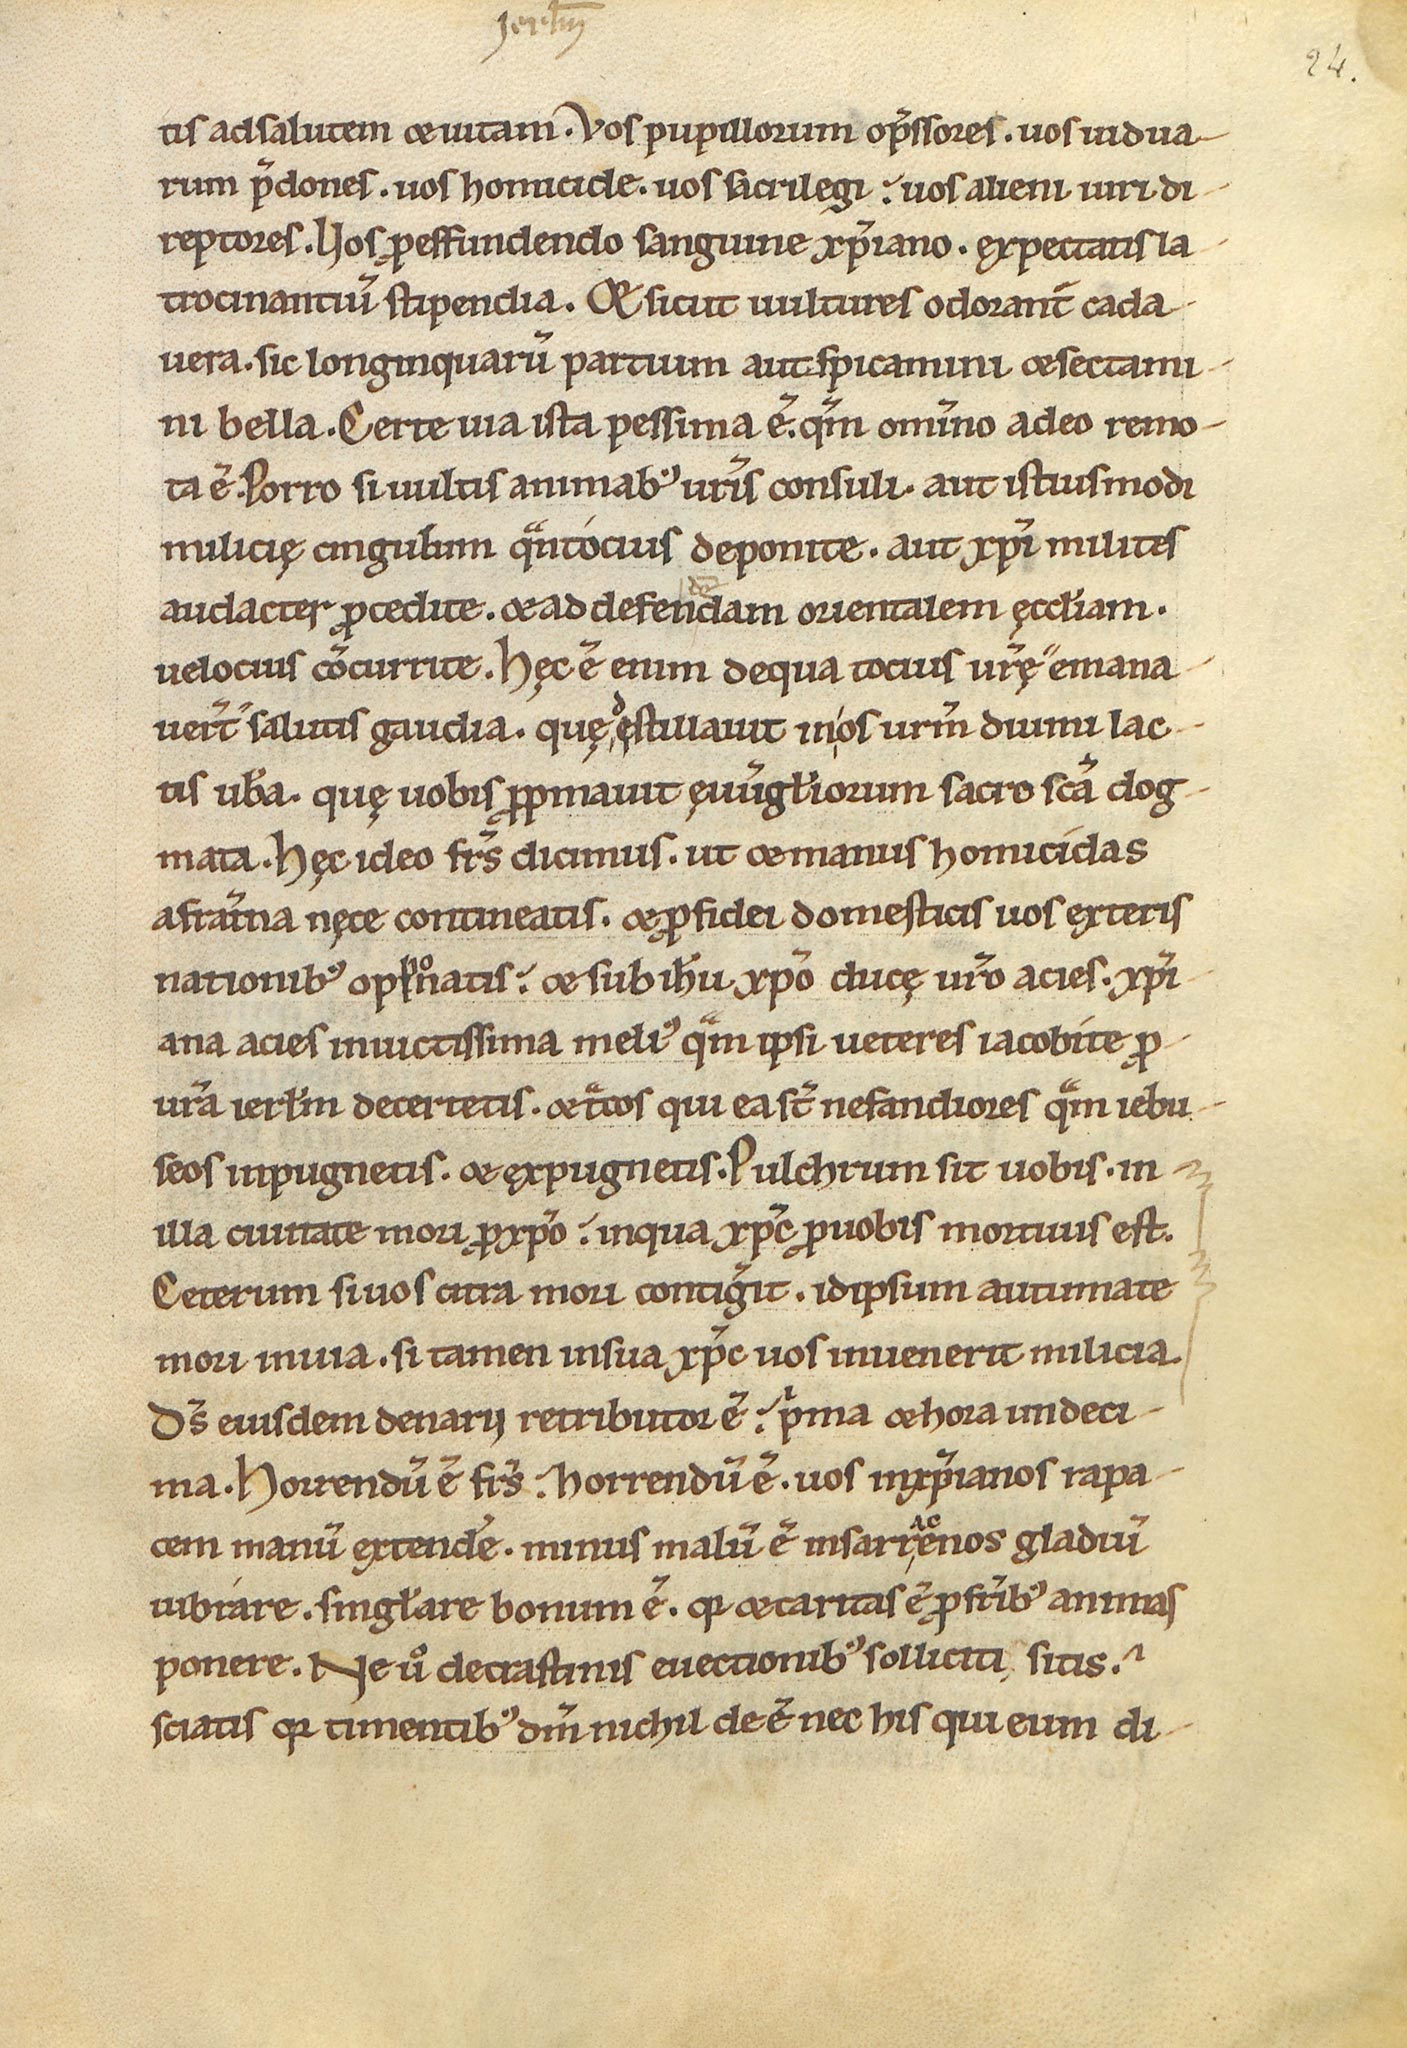 Jerl̅m
24.
tis ad salutem & uitam. Vos pupillorum op̅ssores. uos uidua-
rum p̅dones. uos homicide. uos sacrilegi; uos alieni iuri di-
reptores. Uos ꝓ effundendo sanguine xp̅iano. expectatis la-
trocinantiu̅ stipendia. & sicut uultures odorant̅ cada-
uera. sic longinquaru̅ partium aut spicamini & sectami-
ni bella. Certe uia ista pessima e̅. qm̅ omi̅no a deo remo-
ta e̅. Porro si uultis animabꝰ ur̅is consuli. aut istiusmodi
milicię cingulum qᵃntocius deponite. aut xp̅i milites
audacter ꝓcedite. & ad defendam orientalem ęccl̅iam.
uelocius co̅currite. Hęc e̅ enim de qua tocius ur̅ę emana-
uer̅t salutis gaudia. quę destillauit in os ur̅m diuini lac-
tis ub̅a. quę uobis ꝓpinauit ęuu̅gl̅iorum sacro sc̅a dog-
mata. Hęc ideo fr̅s dicimus. ut & manus homicidas
a frat̅na nęce contineatis. & ꝓ fidei domesticis uos exteris
nationibꝰ opponatis; & sub ih̅u xp̅o ducę ur̅o acies. xp̅i-
ana acies inuictissima meliꝰ qᵃm ipsi ueteres iacobite ꝓ
ur̅a ierl̅m decertetis. & tᵃcos qui ea st̅ nefandiores qᵃm iebu-
seos inpugnetis. & ęxpugnetis. Pulchrum sit uobis. in
illa ciuitate mori ꝓ xp̅o; in qua xp̅c ꝓ uobis mortuus est.
Ceterum si uos citra mori contig̅it. id ipsum autumate
mori in uia. si tamen in sua xp̅c uos inuenerit milicia.
D̅s eiusdem denarij retributor e̅; pⁱma & hora undeci-
ma. Horrendu̅ e̅ fr̅s; horrendu̅ e̅. uos in xp̅ianos rapa-
cem manu̅ extende̅. minus malu̅ e̅ in sarracenos gladiu̅
uibrare. singl̅are bonum e̅. qꝛ & caritas e̅ ꝓ fr̅ibꝰ animas
ponere. Ne uͦ de crastinis euectionibꝰ solliciti sitis.
sciatis qꝛ timentibꝰ dm̅ nichil de e̅ nec his qui eum di-